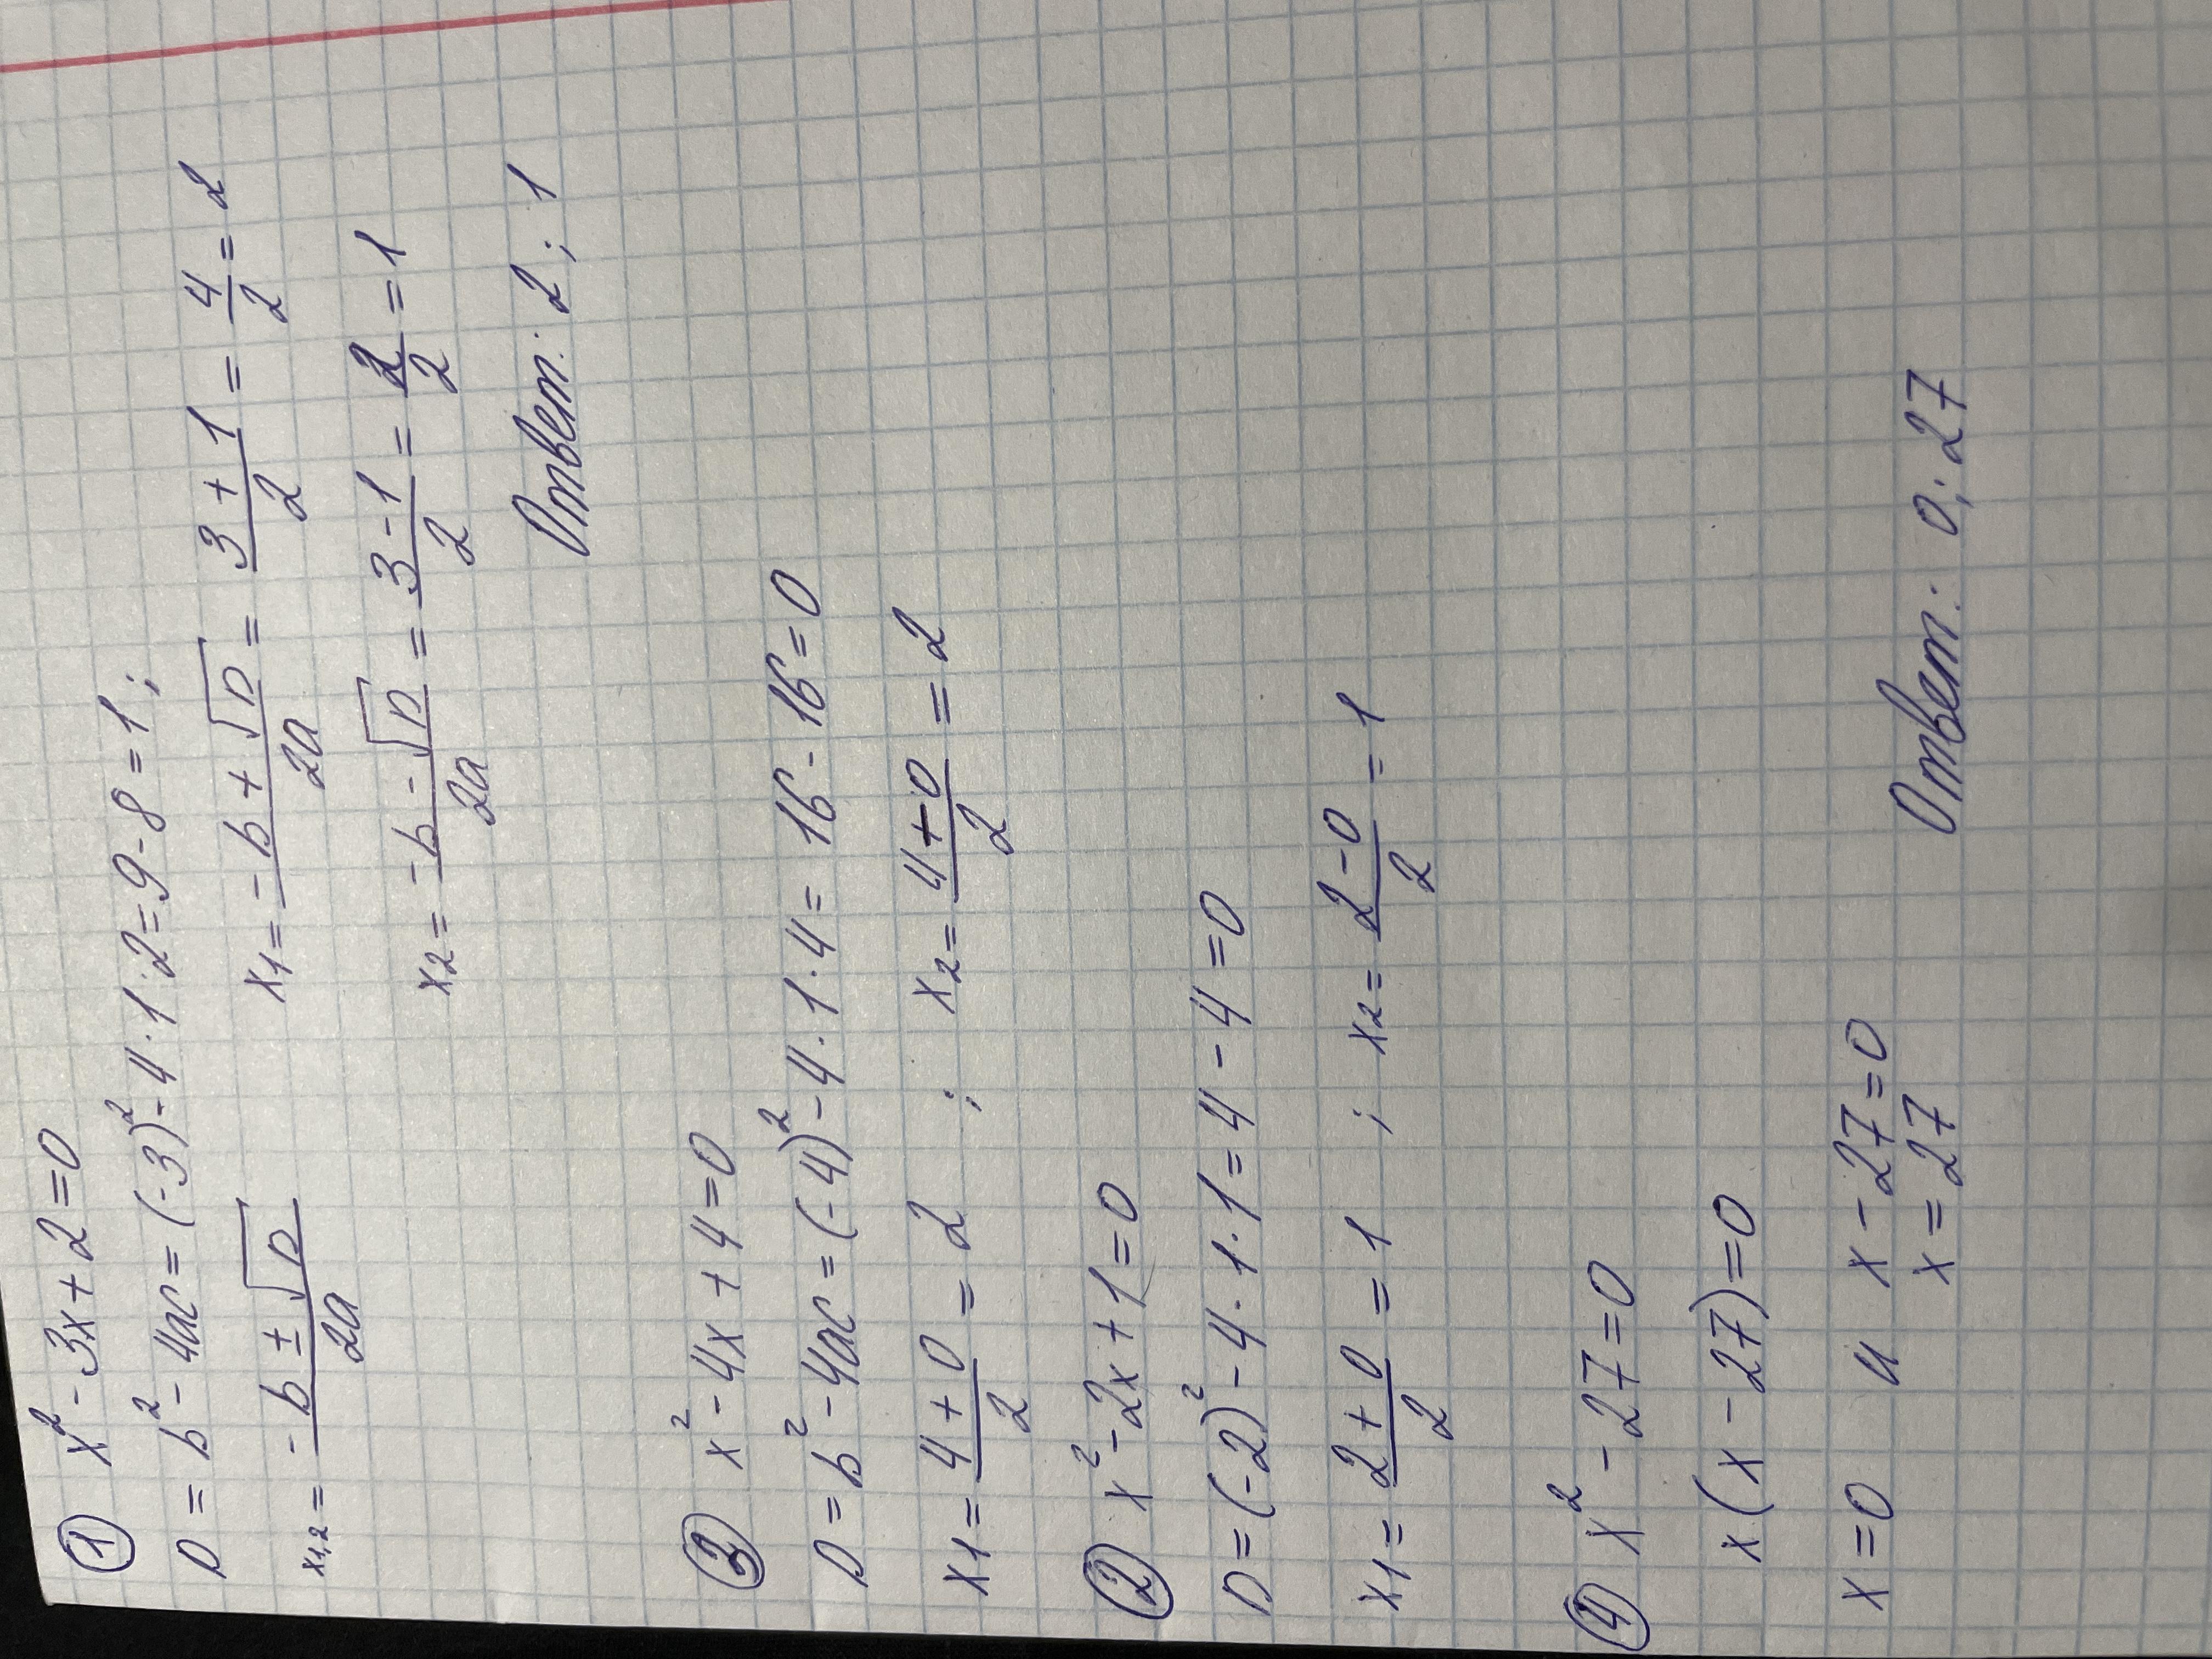 ① x² - 3x + 2 = 0
D = b² - 4ac = (-3)² - 4·1·2 = 9 - 8 = 1;
x1,2 = (-b ± √D)/2a
x1 = (-b + √D)/2a = (3 + 1)/2 = 4/2 = 2
x2 = (-b - √D)/2a = (3 - 1)/2 = 2/2 = 1
Ответ: 2; 1
③ x² - 4x + 4 = 0
D = b² - 4ac = (-4)² - 4·1·4 = 16 - 16 = 0
x1 = (4 + 0)/2 = 2 ; x2 = (4 + 0)/2 = 2
② x² - 2x + 1 = 0
D = (-2)² - 4·1·1 = 4 - 4 = 0
x1 = (2 + 0)/2 = 1 ; x2 = (2 - 0)/2 = 1
④ x² - 27 = 0
x(x - 27) = 0
x = 0 и x - 27 = 0
x = 27
Ответ: 0; 27